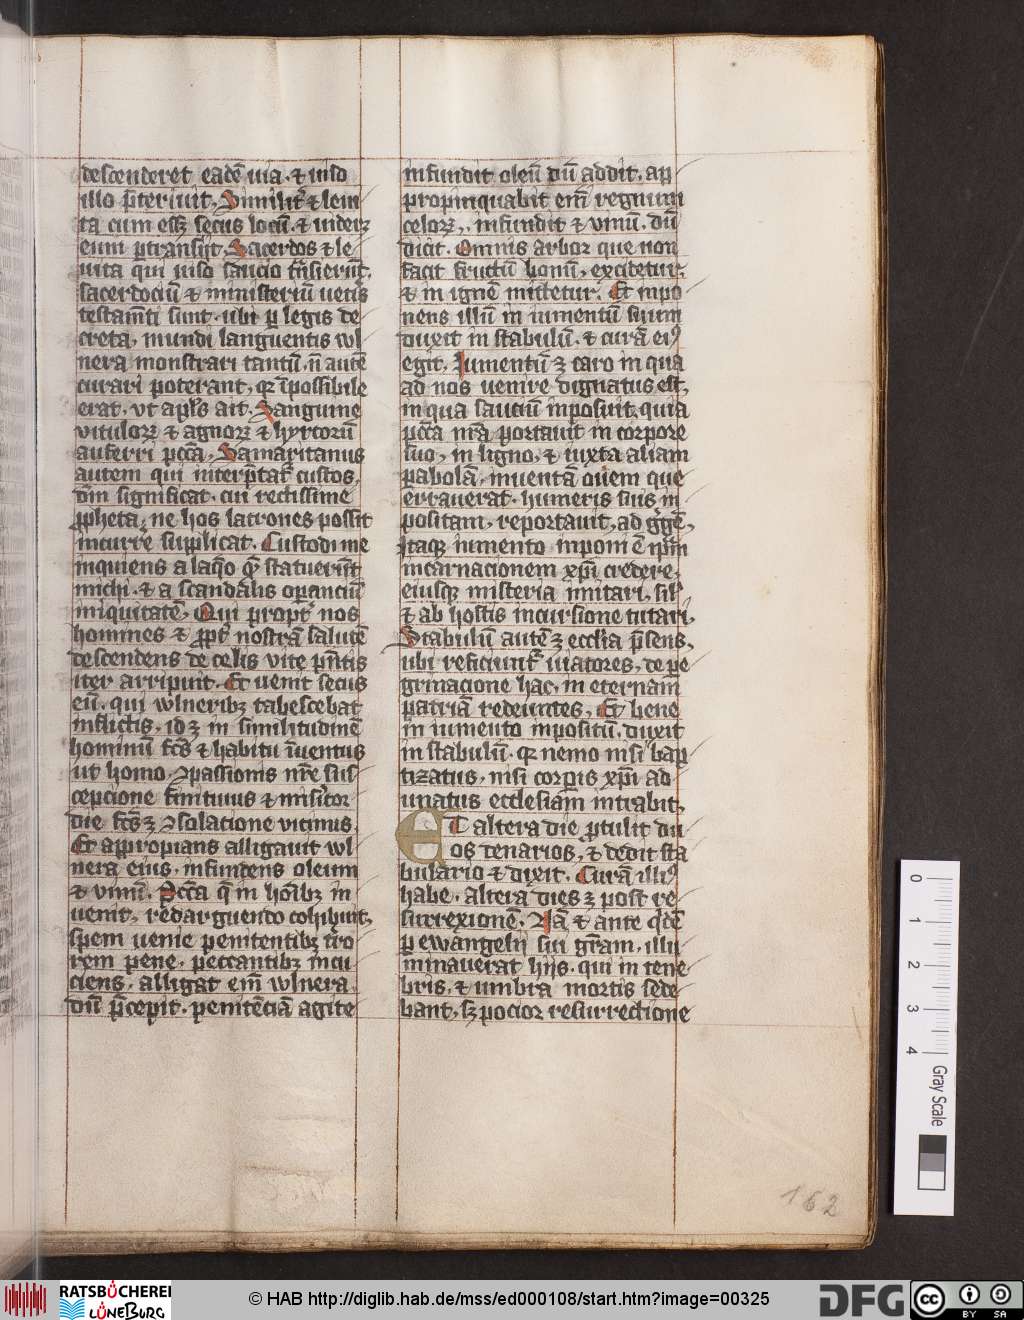 descenderet eadē uia · ⁊ uiso
illo p̄teriuit, Similit᷒ ⁊ leui
ta cum ess₃ secus locū · ⁊ uider₃
eum ꝑtransijt, Sacerdos ⁊ le
uita qui uiso saucio t̄nsierūt,
sacerdociū ⁊ ministeriū uet̄is
testam̄ti sunt · ubi ꝑ legis de
creta, mundi languentis wl
nera monstrari tantū, n̄ autē
curari poterant, qꝛ īpossibile
erat, vt apl̄s ait, Sanguine
vituloꝝ ⁊ agnoꝝ ⁊ hyrcorū
auferri pcc̄a, Samaritanus
autem qui interp̄tat᷒ custos,
dn̄m significat, cui rectissime
ꝓpheta, ne hos latrones possit
incurre supplicat, Custodi me
inquiens a laq̄o q̄m statuerūt
michi · ⁊ a scandalis oꝑanciū
iniquitatē, Qui propt᷒ nos
homines ⁊ ꝓpt᷒ nostrā salutē
descendens de celis vite p̄ntis
iter arripuit, Et uenit secus
eū, qui wlnerib₃ tabescebat
inflictis, id ē in similitudinē
hominū fc̄s ⁊ habitu īuentus
ut homo, ꝯpassionis nr̄e sus
cepcione finitimus ⁊ mis̄icor
die fc̄s ē ꝯsolatione vicinus
Et appropians alligauit wl
nera eius, infundens oleum
⁊ vinū, Pcc̄a q̄ in hoīb₃ in
uenit, redarguendo cohibuit,
spem uenie penitentib₃ tro
rem pene, peccantib₃ incu
ciens, alligat em̄ wlnera,
dū p̄cepit, penitēciā agite
infundit oleū dū addit, ap
propinquabit em̄ regnum
celoꝝ, infundit ⁊ vinū, dū
dicit, Omnis arbor que non
facit fructū bonū, excidetur,
⁊ in ignē mittetur, Et inpo
nens illū in iumentū suum
duxit in stabulū, ⁊ curā ei᷒
egit, Iumentū ē caro in qua
ad nos uenire dignatus est,
in qua sauciū inposuit, quia
pcc̄a nr̄a portauit in corpore
suo, in ligno, ⁊ iuxta aliam
ꝑabolā, inuentā ouem que
errauerat, humeris suis in
positam, reportauit, ad g̓gē,
Itaqꝫ iumento inponi ē ip̄m
incarnacionem xp̄i credere,
eiusqꝫ misteria imitari, sil᷒
⁊ ab hostis incursione tutari,
Stabulū autē ē ecclia p̄sens,
ubi reficiunt᷒ uiatores, de pe
grinacione hac, in eternam
patriā redeuntes, Et bene
in iumento inpositū, duxit
in stabulū · qꝛ nemo nisi bap
tizatus, nisi corꝑis xp̄i ad
unatus ecclesiam intrabit,
ET altera die ꝓtulit du
os denarios, ⁊ dedit sta
bulario ⁊ dixit, Curā illi᷒
habe, Altera dies ē post re
surrexionē, Nā ⁊ ante q̄dē
ꝑ ewangelij sui gr̄am, illu
minauerat hijs, qui in tene
bris, ⁊ umbra mortis sede
bant, s₃ pocior resurrectione
162
0 1 2 3 4
Gray Scale
RATSBÜCHEREI LÜNEBURG
© HAB http://diglib.hab.de/mss/ed000108/start.htm?image=00325
DFG
cc BY SA